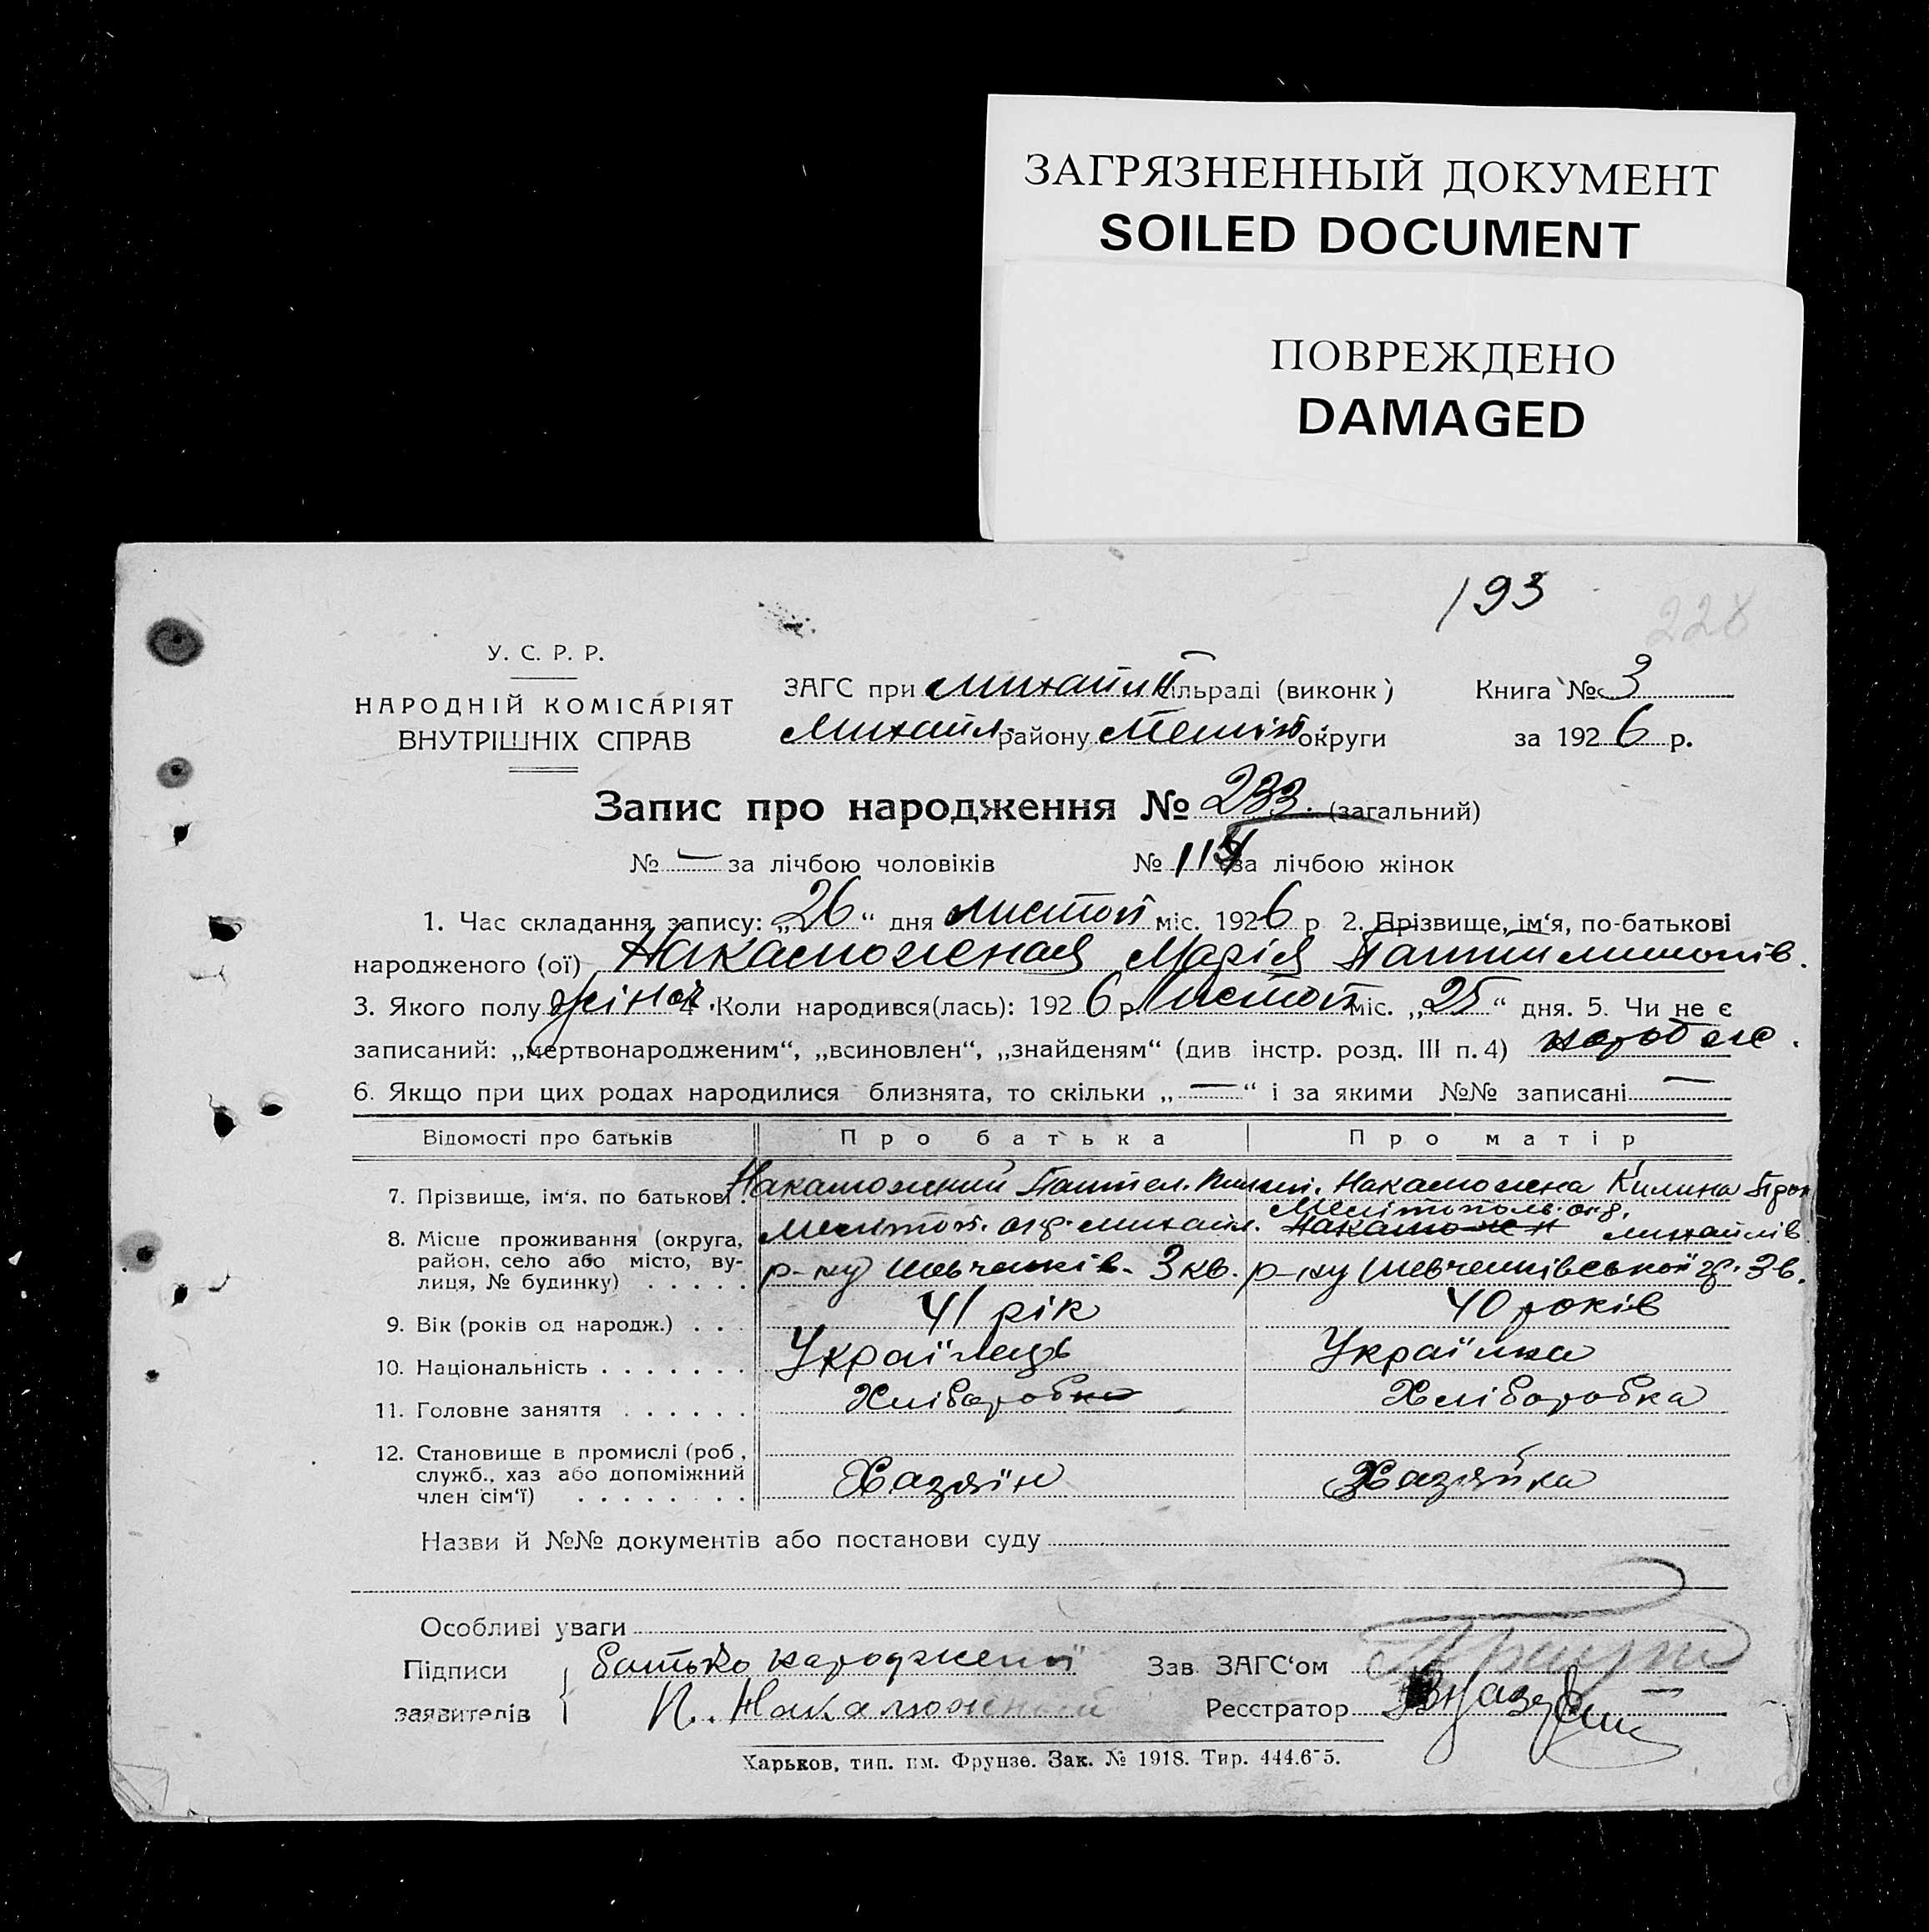 ЗАГРЯЗНЕННЫЙ ДОКУМЕНТ
SOILED DOCUMENT
ПОВРЕЖДЕНО
DAMAGED
193
228
У. С. Р. Р.
НАРОДНІЙ КОМІСАРІЯТ
ВНУТРІШНІХ СПРАВ
ЗАГС при Михайл ільраді (виконк)
Книга № 3
Михайл. району Меліт округи
за 1926 р.
Запис про народження № 233. (загальний)
№ — за лічбою чоловіків № 114 за лічбою жінок
1. Час складання запису: „26“ дня листоп міс. 1926 р 2. Прізвище, ім‘я, по-батькові
народженого (ої) Накаложная Марія
3. Якого полу жіноч. 4 Коли народився(лась): 1926 р. Листоп міс. „25“ дня. 5. Чи не є
записаний: „мертвонародженим“, „всиновлен“, „знайденям“ (див інстр. розд. III п. 4)
6. Якщо при цих родах народилися близнята, то скільки „—“ і за якими №№ записані —
Відомості про батьків
Про батька
Про матір
7. Прізвище, ім‘я, по батькові . Накаложний Пантел. Накаложна Килина Проп
8. Місце проживання (округа, район, село або місто, вулиця, № будинку) . . . . .
Меліто п. окр. михайл.
р-ну Шевченків. 3 кв.
Мелітополь. окр.
михайлів
р-ну Шевченківської 3 в.
9. Вік (років од народж.) . . . 41 рік 40 років
10. Національність . . . . . . . Українець Українка
11. Головне заняття . . . . . . Хлібороб Хліборобка
12. Становище в промислі (роб., служб., хаз або допоміжний член сім‘ї) . . . . . . .
Хазяїн Хазяйка
Назви й №№ документів або постанови суду
Особливі уваги
Підписи
заявителів
батько народженої
П. Накаложний
Зав ЗАГС‘ом
Реєстратор
Харьков, тип. им. Фрунзе. Зак. № 1918. Тир. 444.6-5.